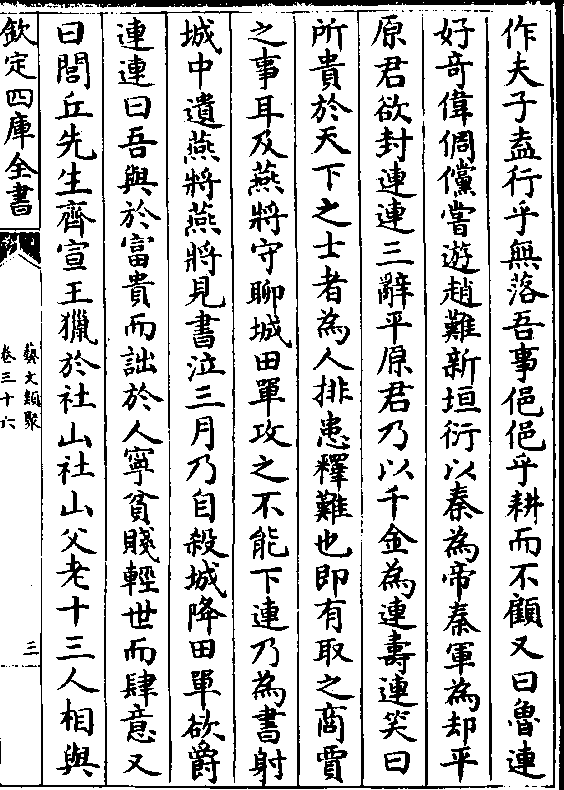 作夫子盍行乎無落吾事俋俋乎耕而不顧又曰魯連
好竒偉倜儻嘗遊趙難新垣衍以秦為帝秦軍為却平
原君欲封連連三辭平原君乃以千金為連壽連笑曰
所貴於天下之士者為人排患釋難也即有取之商賈
之事耳及燕將守聊城田單攻之不能下連乃為書射
城中遺燕將燕將見書泣三月乃自殺城降田單欲爵
連連曰吾與於富貴而詘於人寧貧賤輕世而肆意又
曰閭丘先生齊宣王獵於社山社山父老十三人相與
欽定四庫全書
藝文類聚
卷三十六
三